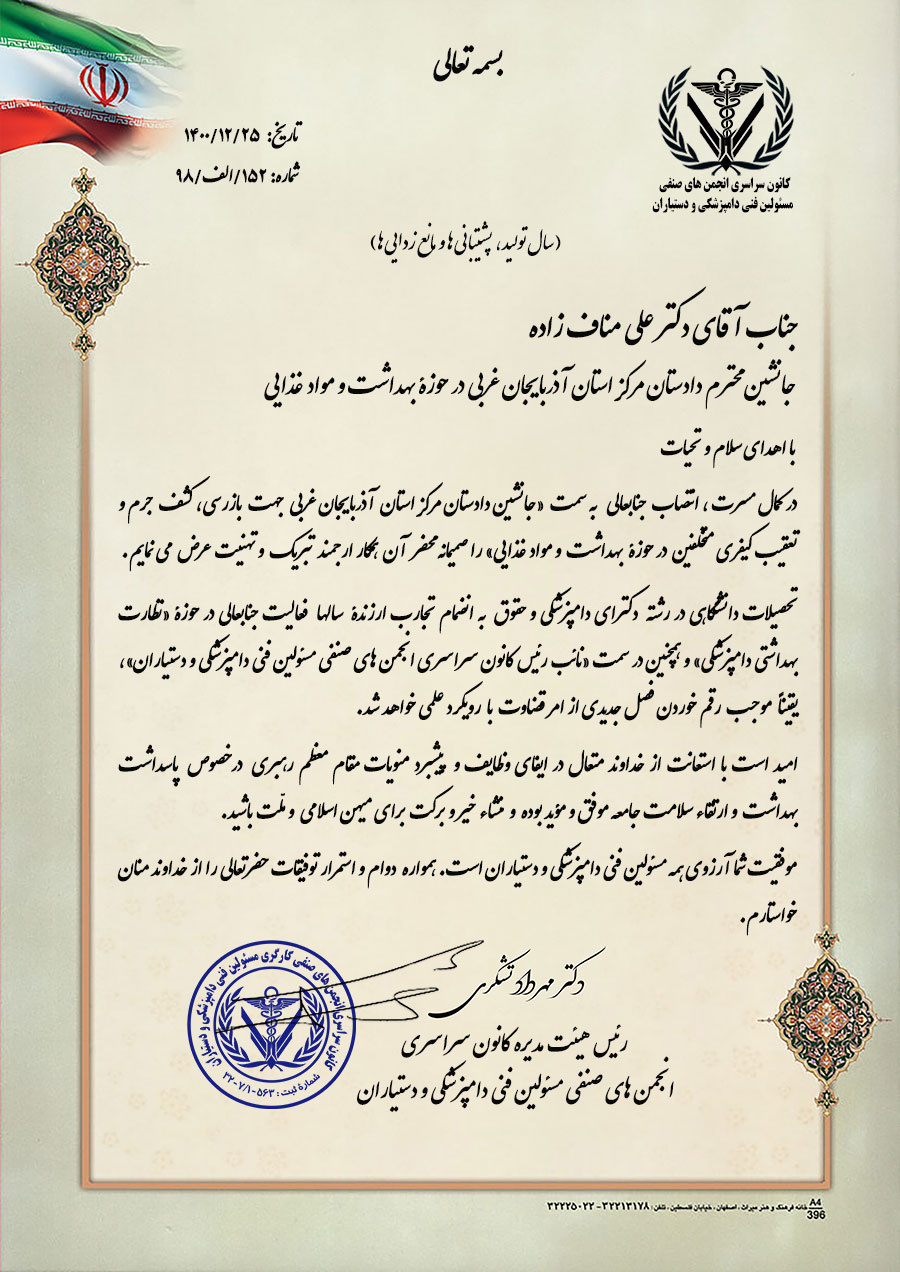 بسمه تعالی
تاریخ: ۱۴۰۰/۱۲/۲۵
شماره: ۱۵۲/الف/۹۸
کانون سراسری انجمن های صنفی
مسئولین فنی دامپزشکی و دستیاران
(سال تولید، پشتیبانی ها و مانع زدایی ها)
جناب آقای دکتر علی مناف زاده
جانشین محترم دادستان مرکز استان آذربایجان غربی در حوزهٔ بهداشت و مواد غذایی
با اهدای سلام و تحیات
در کمال مسرت، انتصاب جنابعالی به سمت «جانشین دادستان مرکز استان آذربایجان غربی جهت بازرسی، کشف جرم و
تعقیب کیفری متخلفین در حوزهٔ بهداشت و مواد غذایی» را صمیمانه محضر آن همکار ارجمند تبریک و تهنیت عرض می نمایم.
تحصیلات دانشگاهی در رشته دکترای دامپزشکی و حقوق به انضمام تجارب ارزندهٔ سالها فعالیت جنابعالی در حوزهٔ «نظارت
بهداشتی دامپزشکی» و همچنین در سمت «نائب رئیس کانون سراسری انجمن های صنفی مسئولین فنی دامپزشکی و دستیاران»،
یقیناً موجب رقم خوردن فصل جدیدی از امر قضاوت با رویکرد علمی خواهد شد.
امید است با استعانت از خداوند متعال در ایفای وظایف و پیشبرد منویات مقام معظم رهبری درخصوص پاسداشت
بهداشت و ارتقاء سلامت جامعه موفق و مؤید بوده و منشاء خیر و برکت برای میهن اسلامی و ملّت باشید.
موفقیت شما آرزوی همه مسئولین فنی دامپزشکی و دستیاران است. همواره دوام و استمرار توفیقات حضرتعالی را از خداوند منان
خواستارم.
دکتر مهرداد تشکری
رئیس هیئت مدیره کانون سراسری
انجمن های صنفی مسئولین فنی دامپزشکی و دستیاران
کانون سراسری انجمن های صنفی کارگری مسئولین فنی دامپزشکی و دستیاران
شمارهٔ ثبت: ۵۶۳-۳۲-۷/۱
A4
396
خانه فرهنگ و هنر میراث، اصفهان، خیابان فلسطین، تلفن: ۳۲۲۱۳۱۷۸-۳۲۲۲۵۰۲۲